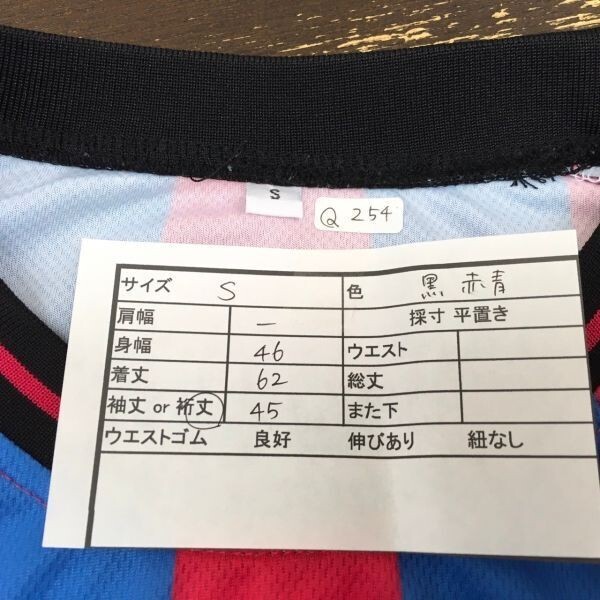 S
Q 254
サイズ S 色 黒 赤青
肩幅 — 採寸 平置き
身幅 46 ウエスト
着丈 62 総丈
袖丈 or 裄丈 45 また下
ウエストゴム 良好 伸びあり 紐なし